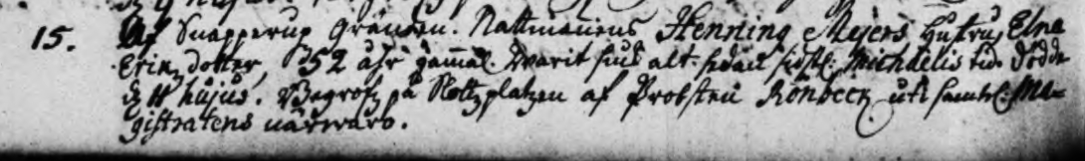 15. Af Snapperup gränden. Nattmanens Henning Meijers hustru, Elna
Erix dotter, 52 åhr gammal. Warit siuk alt sedan sidstl: Michaelis tid. Dödde
d. 11 hujus. Begrofz på Slottzplatzen af Probsten Rönbeck uti samtl: Ma-
gistratens närwaro.